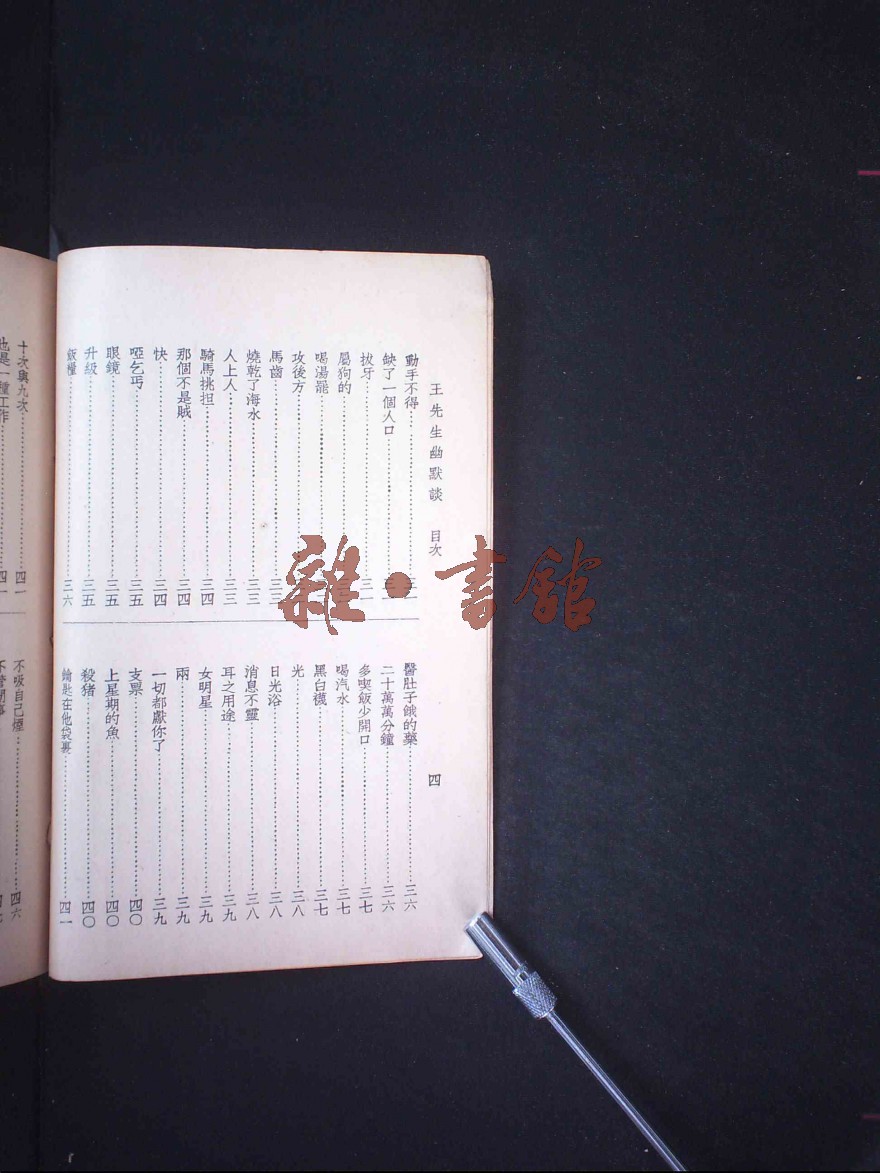 王先生幽默談 目次
四
動手不得
缺了一個人口
拔牙
屬狗的
喝湯罷
攻後方
馬齒
燒乾了海水 三三
人上人 三三
騎馬挑担 三四
那個不是賊 三四
快 三四
啞乞丐 三五
眼鏡 三五
升級 三五
飯糧 三六
醫肚子餓的藥 三六
二十萬萬分鐘 三六
多喫飯少開口 三七
喝汽水 三七
黑白襪 三七
光 三八
日光浴 三八
消息不靈 三八
耳之用途 三九
女明星 三九
兩 三九
一切都獻你了 三九
支票 四〇
上星期的魚 四〇
殺猪 四〇
鑰匙在他袋裏 四一
十次與九次 四一
也是一種工作 四一
不吸自己煙 四六
雜·書館